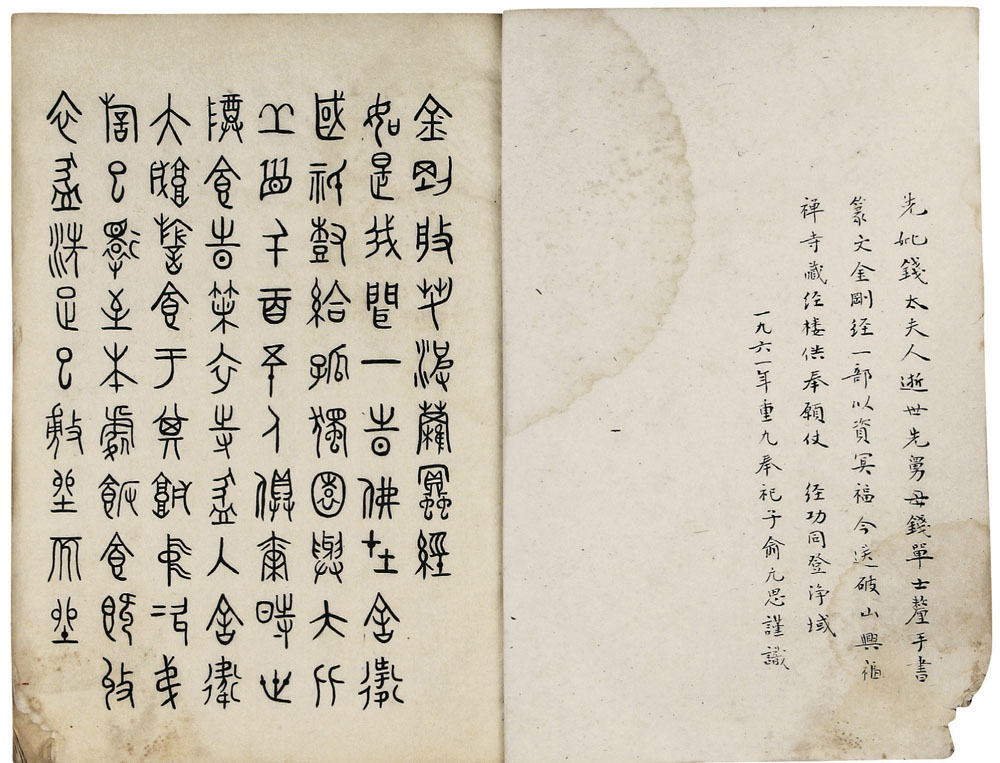 先妣錢太夫人逝世先舅母錢單士釐手書
篆文金剛經一部以資冥福今送破山興福
禪寺藏经楼供奉願仗 经功同登浄域
一九六一年重九奉祀子俞亢思謹識
金剛般若波羅蜜經
如是我聞一時佛在舍衛
國祇樹給孤獨園與大比
丘眾千百五人俱爾時世
尊食時著衣持盋入舍衛
大城乞食于其城中次第
乞已還至本處飯食訖收
衣盋洗足已敷坐而坐